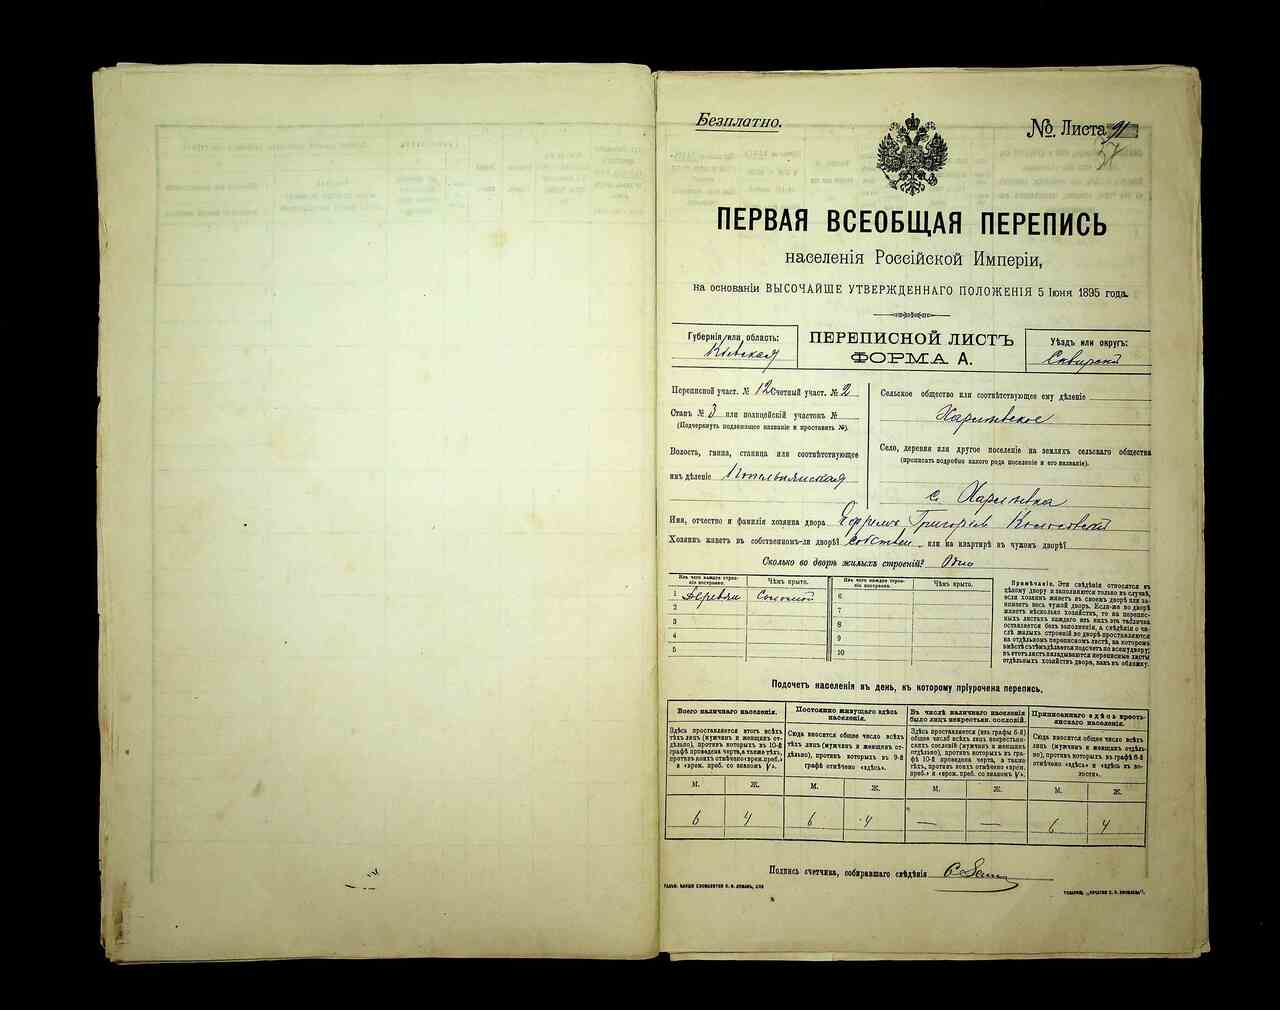 Безплатно.
№ Листа 91
37
ПЕРВАЯ ВСЕОБЩАЯ ПЕРЕПИСЬ
населенія Россійской Имперіи,
на основаніи ВЫСОЧАЙШЕ УТВЕРЖДЕННАГО ПОЛОЖЕНІЯ 5 Іюня 1895 года.
Губернія или область:
Кіевская
ПЕРЕПИСНОЙ ЛИСТЪ
ФОРМА А.
Уѣздъ или округъ:
Сквирскій
Переписной участ. № 12 Счетный участ. № 2
Станъ № 3 или полицейскій участокъ №
(Подчеркнуть подлежащее названіе и проставить №).
Волость, гмина, станица или соотвѣтствующее
имъ дѣленіе
Сельское общество или соотвѣтствующее ему дѣленіе
Село, деревня или другое поселеніе на земляхъ сельскаго общества
(прописать подробно какого рода поселеніе и его названіе).
с.
Имя, отчество и фамилія хозяина двора Ефремъ Григорьевъ
Хозяинъ живетъ въ собственномъ-ли дворѣ? собствен или на квартирѣ въ чужомъ дворѣ?
Сколько во дворѣ жилыхъ строеній? Одно
Изъ чего каждое строеніе построено.
Чѣмъ крыто.
Изъ чего каждое строеніе построено.
Чѣмъ крыто.
1 Деревян Соломой
2
3
4
5
6
7
8
9
10
Примѣчаніе. Эти свѣдѣнія относятся къ
цѣлому двору и заполняются только въ случаѣ,
если хозяинъ живетъ въ своемъ дворѣ или занимаетъ
весь чужой дворъ. Если-же во дворѣ
живетъ нѣсколько хозяйствъ, то на переписныхъ
листахъ каждаго изъ нихъ эта табличка
оставляется безъ заполненія, а свѣдѣнія о числѣ
жилыхъ строеній во дворѣ проставляются
на отдѣльномъ переписномъ листѣ, на которомъ
вмѣстѣ съ тѣмъ дѣлается подсчетъ по всему двору;
въ этотъ листъ вкладываются переписные листы
отдѣльныхъ хозяйствъ двора, какъ въ обложку.
Подсчетъ населенія въ день, къ которому пріурочена перепись.
Всего наличнаго населенія.
Здѣсь проставляется итогъ всѣхъ
тѣхъ лицъ (мужчинъ и женщинъ отдѣльно),
противъ которыхъ въ 10-й
графѣ проведена черта, а также тѣхъ,
противъ коихъ отмѣчено «врем. преб.»
и «врем. преб. со знакомъ V».
Постоянно живущаго здѣсь
населенія.
Сюда вносится общее число всѣхъ
тѣхъ лицъ (мужчинъ и женщинъ отдѣльно),
противъ которыхъ въ 9-й
графѣ отмѣчено «здѣсь».
Въ числѣ наличнаго населенія
было лицъ некрестьян. сословій.
Здѣсь проставляется (изъ графы 6-й)
общее число всѣхъ лицъ некрестьянскихъ
сословій (мужчинъ и женщинъ
отдѣльно), противъ которыхъ въ графѣ
10-й проведена черта, а также
тѣхъ, противъ коихъ отмѣчено «врем.
преб.» и «врем. преб. со знакомъ V».
Приписаннаго здѣсь крестьянскаго
населенія.
Сюда вносится общее число всѣхъ
лицъ (мужчинъ и женщинъ отдѣльно),
противъ которыхъ въ графѣ 8-й
отмѣчено «здѣсь» и «здѣсь въ волости».
М. Ж. М. Ж. М. Ж. М. Ж.
6 4 6 4 — — 6 4
Подпись счетчика, собиравшаго свѣдѣнія